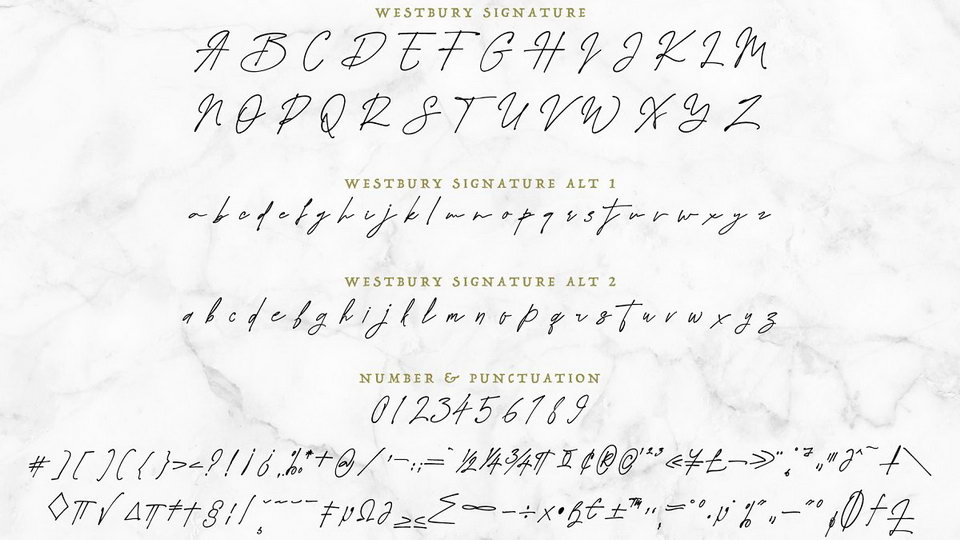 WESTBURY SIGNATURE
A B C D E F G H I J K L M
N O P Q R S T U V W X Y Z
WESTBURY SIGNATURE ALT 1
a b c d e f g h i j k l m n o p q r s t u v w x y z
WESTBURY SIGNATURE ALT 2
a b c d e f g h i j k l m n o p q r s t u v w x y z
NUMBER & PUNCTUATION
0 1 2 3 4 5 6 7 8 9
# ] [ ] ( { } > < ? ! / @ / ½ ¼ ¾ « ¥ £ » \
◊ π √ ∆ π ‡ † § ¦ / µ Ω ∂ ≥ ≤ ∑ ∞ − ÷ × • ß ± ™